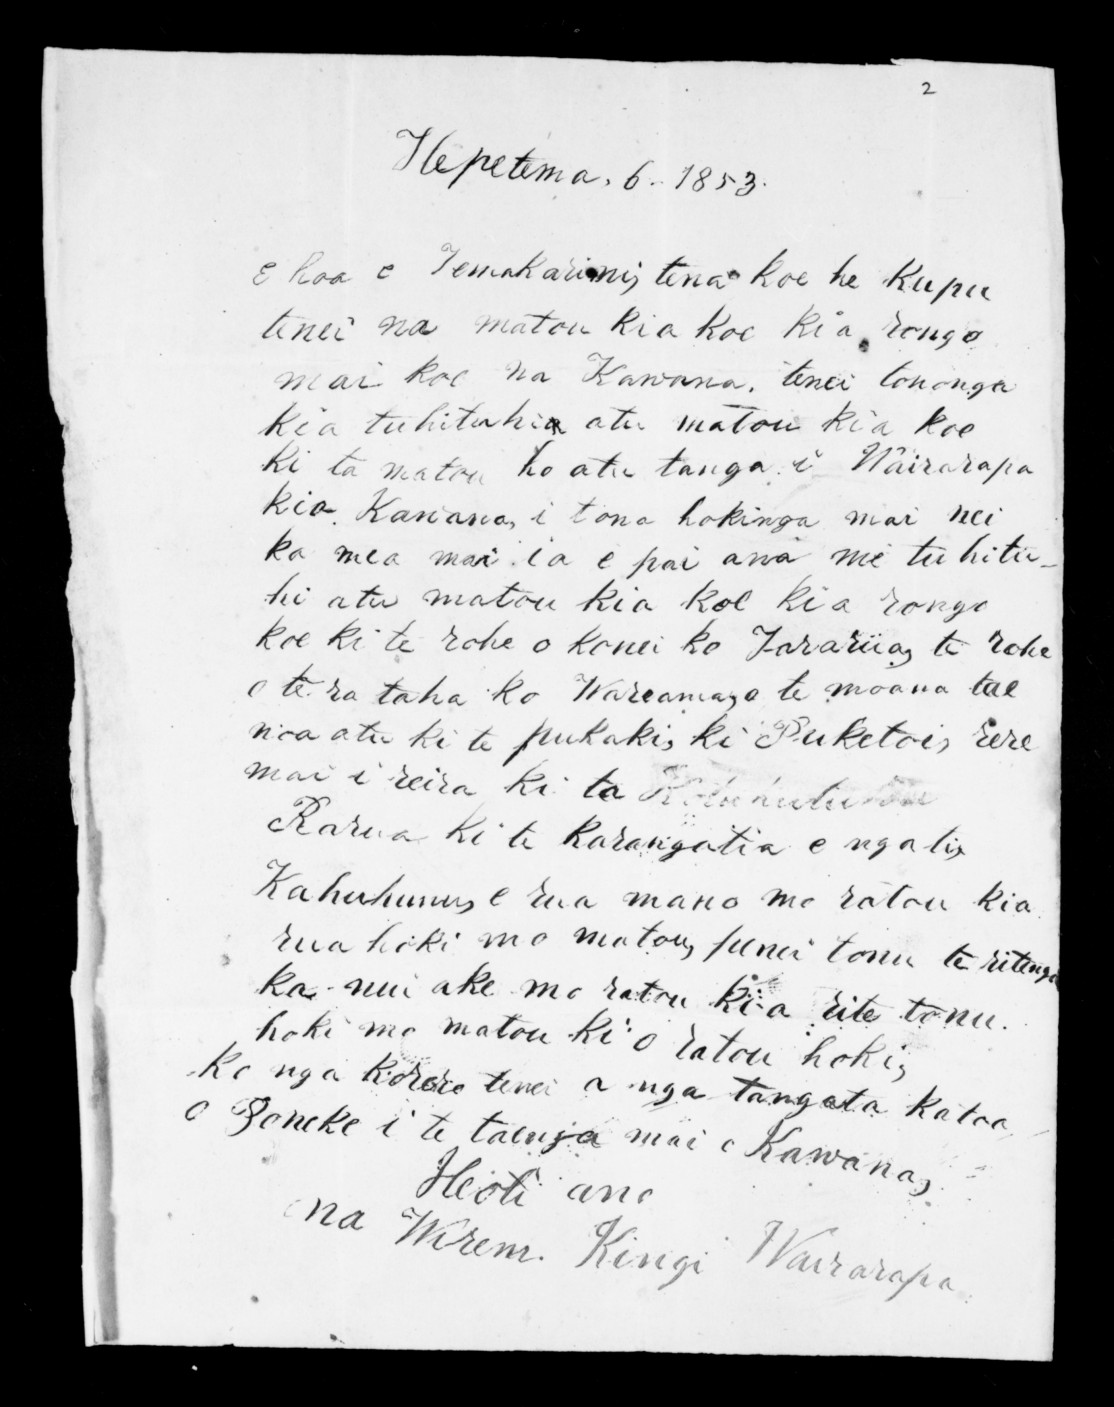 2
Hepetema. 6. 1853.
E hoa e Temakarini, tena koe he kupu
tenei na matou kia koe kia rongo
mai koe na Kawana. tenei tononga
kia tuhituhia atu matou kia koe
ki ta matou ho atu tanga i Wairarapa
kia Kawana, i tona hokinga mai nei
ka mea mai ia e pai ana me tuhitu-
hi atu matou kia koe kia rongo
koe ki te rohe o konei ko Tararua, te rohe
o te ra taha ko Wareama, o te moana tae
noa atu ki te pukaki, ki Puketoi, rere
mai i reira ki ta
Rarua ki te karangatia e ngati,
Kahuhunu, e rua mano mo ratou kia
rua hoki mo matou, penei tonu te ritenga
ka nui ake mo ratou kia rite tonu.
hoki mo matou ki o ratou hoki,
ko nga korero tenei a nga tangata katoa
o Poneke i te taenga mai o Kawana,
Heoti ano
na Wirem. Kingi Wairarapa